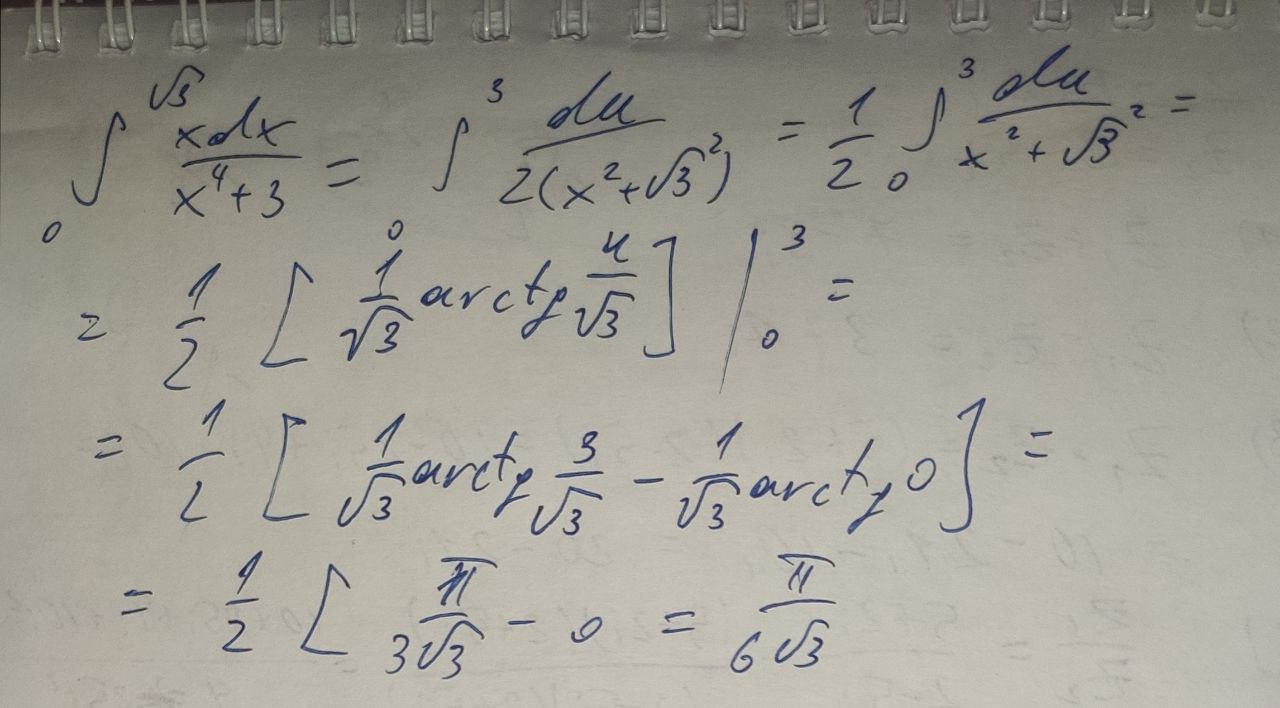 ∫₀^√3 xdx/(x⁴+3) = ∫₀^3 du/(2(x²+√3²)) = 1/2 ∫₀^3 du/(x²+√3²) =
= 1/2 [1/√3 arctg u/√3] |₀^3 =
= 1/2 [1/√3 arctg 3/√3 − 1/√3 arctg 0] =
= 1/2 [π/(3√3) − 0 = π/(6√3)